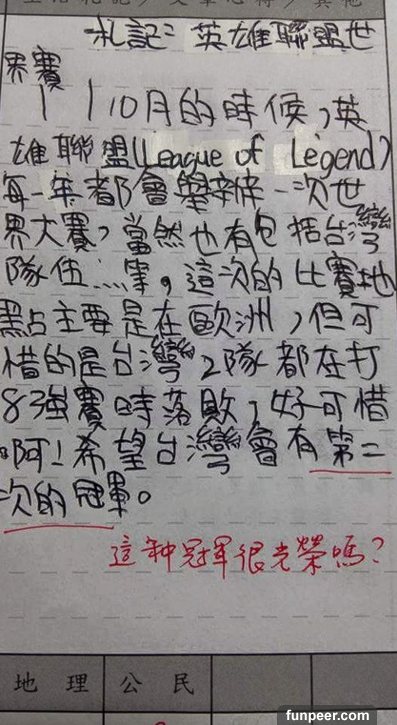 札記:英雄聯盟世
界賽
10月的時候,英
雄聯盟(League of Legend)
每一年都會舉辦一次世
界大賽,當然也有包括台灣
隊伍…等。這次的比賽地
點主要是在歐洲,但可
惜的是台灣2隊都在打
8強賽時落敗,好可惜
啊!希望台灣會有第二
次的冠軍。
這种冠軍很光榮嗎?
地理 公民
funpeer.com